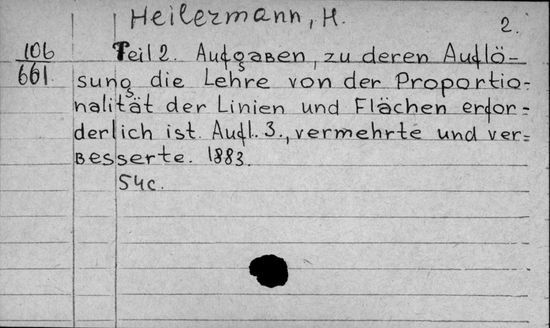 Heilermann, H.
2.
106
661
Teil 2. Aufgaben, zu deren Auflö-
sung die Lehre von der Proportio-
nalität der Linien und Flächen erfor-
derlich ist. Aufl. 3., vermehrte und ver-
besserte. 1883.
54c.